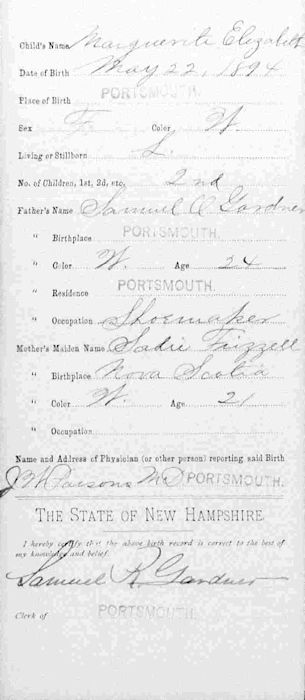 Child's Name Marguerite Elizabeth
Date of Birth May 22, 1894
Place of Birth PORTSMOUTH.
Sex F. Color W.
Living or Stillborn L.
No. of Children, 1st, 2d, etc. 2nd
Father's Name Samuel A Gardner
" Birthplace PORTSMOUTH.
" Color W. Age 24
" Residence PORTSMOUTH.
" Occupation Shoemaker
Mother's Maiden Name Sadie Frizzell
" Birthplace Nova Scotia
" Color W. Age 21
" Occupation
Name and Address of Physician (or other person) reporting said Birth
J W Parsons M.D PORTSMOUTH.
THE STATE OF NEW HAMPSHIRE.
I hereby certify that the above birth record is correct to the best of
my knowledge and belief.
Samuel R. Gardner
Clerk of PORTSMOUTH.